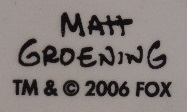 MATT
GROENING
TM & © 2006 FOX